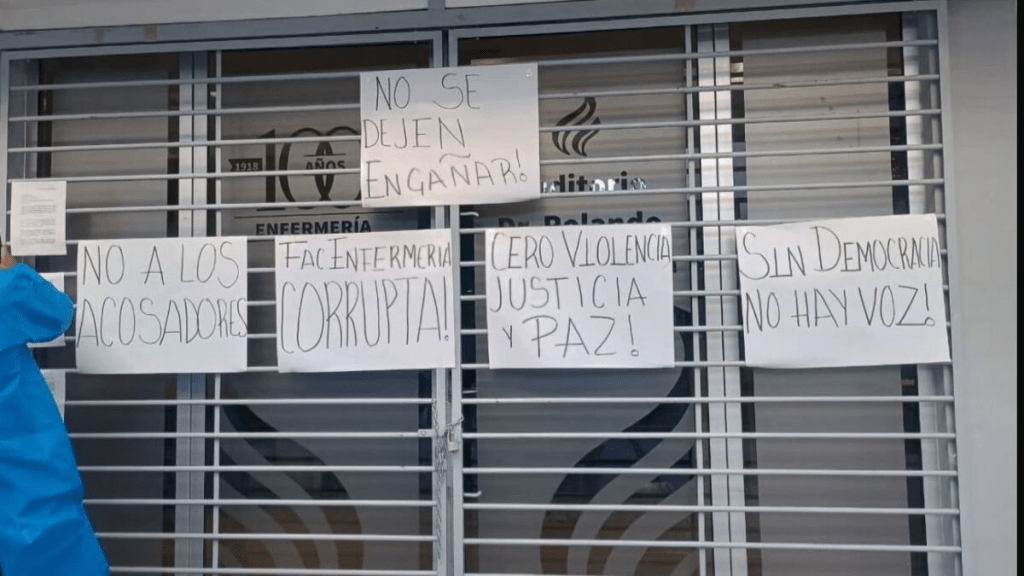 NO SE
DEJEN
ENGAÑAR!
1918
100
AÑOS
ENFERMERÍA
Dr. Rolando
NO A LOS
ACOSADORES
FAC ENFERMERIA
CORRUPTA!
CERO VIOLENCIA
JUSTICIA
Y PAZ!
SIN DEMOCRACIA
NO HAY VOZ!